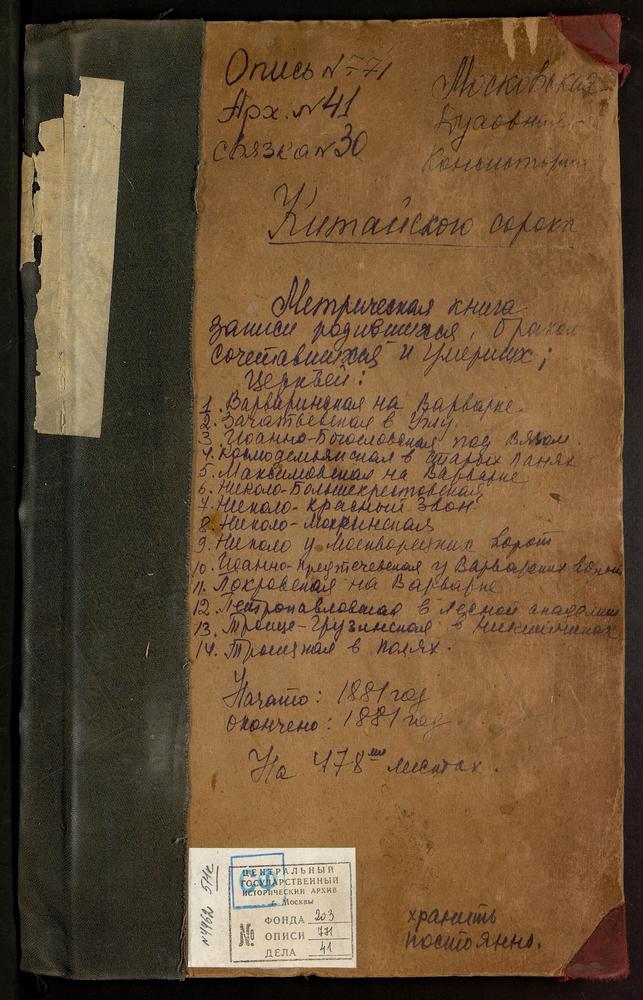 Опись № 771
Арх. № 41
связка № 30
Московская
Духовная
Консистория
Китайского сорока
Метрическая книга
записи родившихся, браком
сочетавшихся и умерших;
церквей:
1. Варваринская на Варварке.
2. Зачатьевская в Углу
3. Иоанно-Богословская под Вязом.
4. Космодемьянская в старых панях
5. Максимовская на Варварке
6. Николо-Большекрестовская
7. Николо-Красный звон
8. Николо-Мокринская
9. Николо у Москворецких ворот
10. Иоанно-Предтеченская у Варварских ворот
11. Покровская на Варварке
12. Петропавловская в лесной академии
13. Троице-Грузинская в Никитниках
14. Троицкая в Полях.
Начато: 1881 год
окончено: 1881 год
На 478ми листах.
ЦЕНТРАЛЬНЫЙ
ГОСУДАРСТВЕННЫЙ
ИСТОРИЧЕСКИЙ АРХИВ
г. Москвы
ФОНДА 203
ОПИСИ 771
ДЕЛА 41
хранить
постоянно.